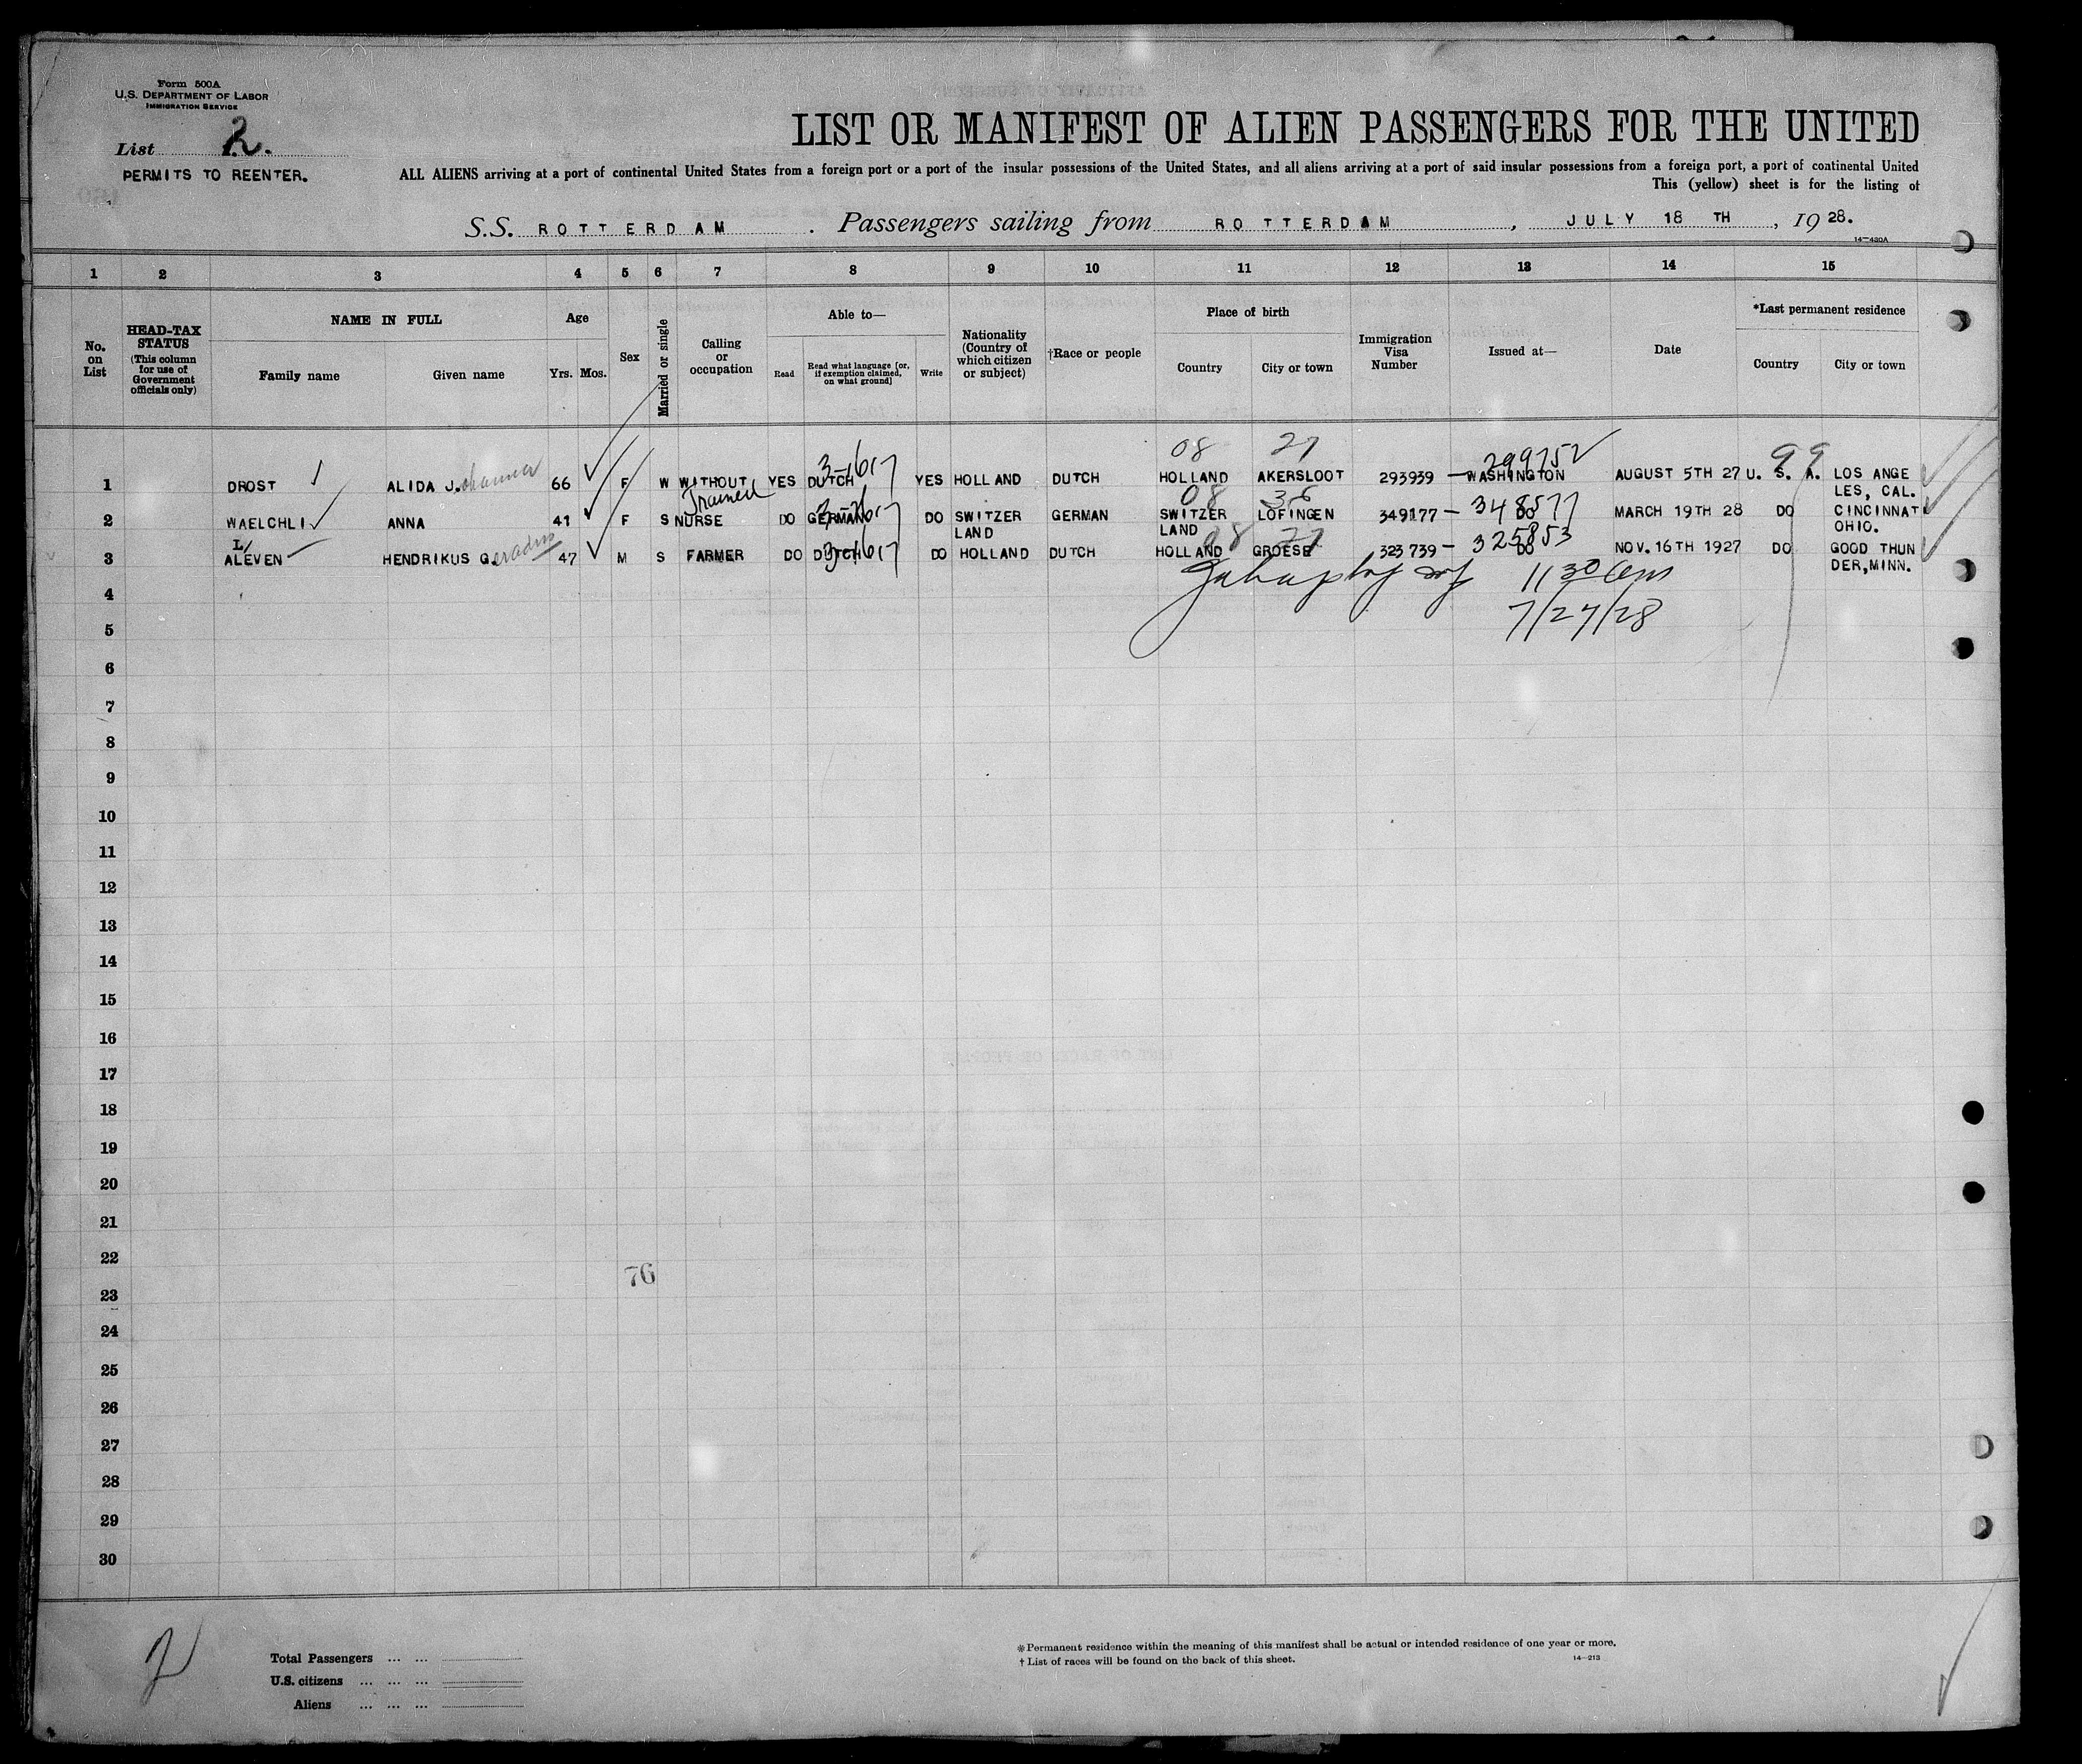 Form 500A
U.S. DEPARTMENT OF LABOR
IMMIGRATION SERVICE
List 2.
PERMITS TO REENTER.
LIST OR MANIFEST OF ALIEN PASSENGERS FOR THE UNITED
ALL ALIENS arriving at a port of continental United States from a foreign port or a port of the insular possessions of the United States, and all aliens arriving at a port of said insular possessions from a foreign port, a port of continental United
This (yellow) sheet is for the listing of
S.S. ROTTERDAM. Passengers sailing from ROTTERDAM, JULY 18 TH, 19 28.
14—430A
1 2 3 4 5 6 7 8 9 10 11 12 13 14 15
No. on List
HEAD-TAX STATUS (This column for use of Government officials only)
NAME IN FULL
Family name Given name
Age
Yrs. Mos.
Sex
Married or single
Calling or occupation
Able to—
Read
Read what language [or, if exemption claimed, on what ground]
Write
Nationality (Country of which citizen or subject)
†Race or people
Place of birth
Country City or town
Immigration Visa Number
Issued at—
Date
*Last permanent residence
Country City or town
08 27 299752 99
1 DROST ALIDA J.ohanna 66 F W WITHOUT YES DUTCH YES HOLLAND DUTCH HOLLAND AKERSLOOT 293939 — WASHINGTON AUGUST 5TH 27 U. S. A. LOS ANGE
LES, CAL.
Trained
2 WAELCHLI ANNA 41 F S NURSE DO GERMAN DO SWITZER GERMAN SWITZER LOFINGEN 349177 — 348577 DO MARCH 19TH 28 DO CINCINNATI
LAND LAND OHIO.
L
3 ALEVEN HENDRIKUS G.eradus 47 M S FARMER DO DUTCH DO HOLLAND DUTCH HOLLAND GROESE 323739 — 325853 DO NOV. 16TH 1927 DO GOOD THUN
DER, MINN.
11 30 am
7/27/28
4
5
6
7
8
9
10
11
12
13
14
15
16
17
18
19
20
21
22
76
23
24
25
26
27
28
29
30
Total Passengers ... ...
U.S. citizens ... ... ...
Aliens ... ... ...
*Permanent residence within the meaning of this manifest shall be actual or intended residence of one year or more.
† List of races will be found on the back of this sheet.
14—213